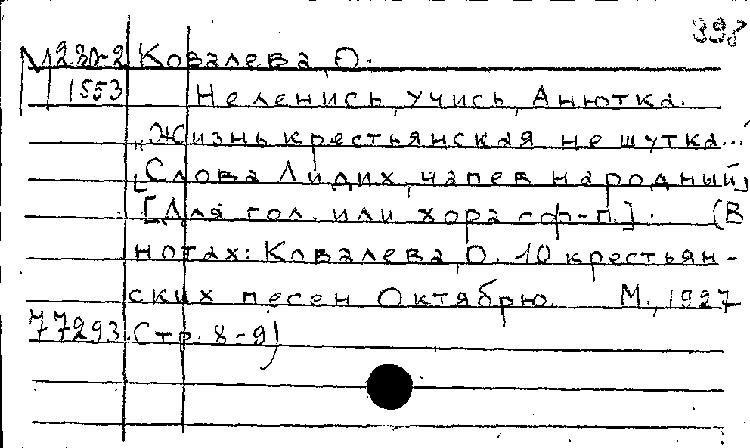 398
М 230-2 Ковалева, О.
1553 Не ленись, учись, Анютка.
"Жизнь крестьянская не шутка..."
[Слова Лидих, напев народный]
[Для гол. или хора с ф-п.]. (В
нотах: Ковалева, О. 10 крестьян-
ских песен Октябрю. М., 1927
77293 Стр. 8-9)